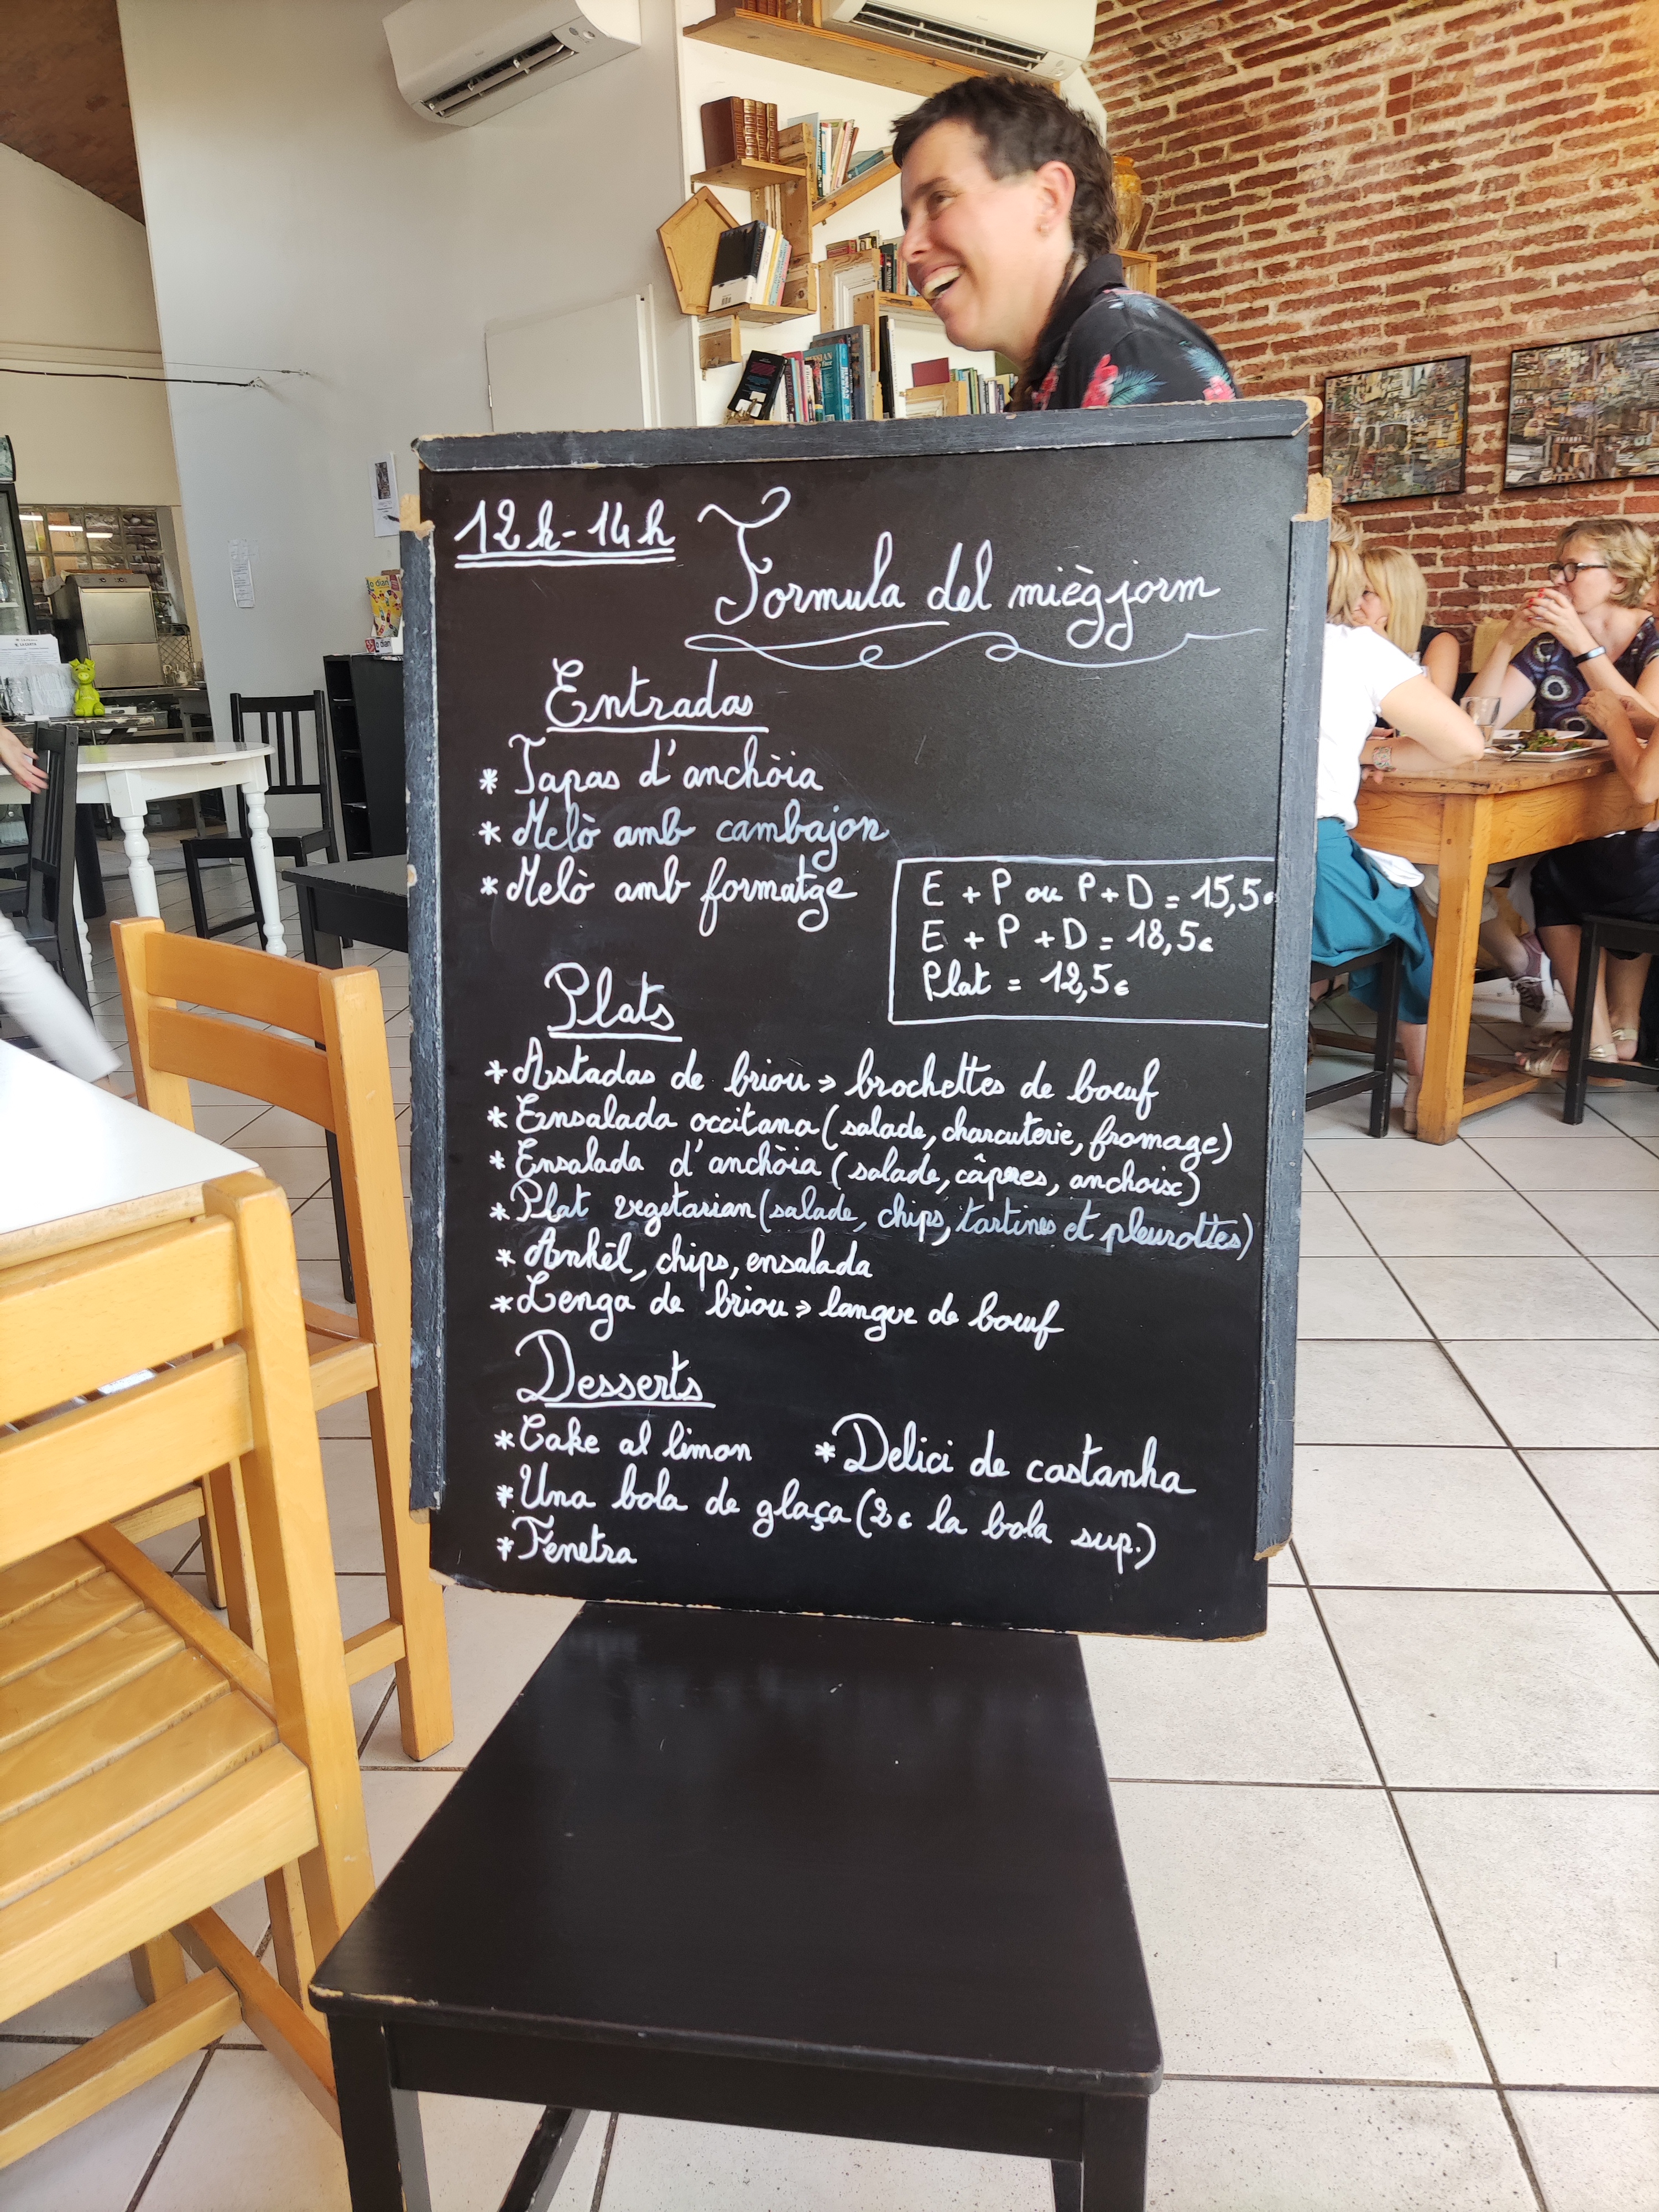 12h-14h Formula del mièg jorm
Entradas
* Tapas d'anchòia
* Melò amb cambajon
* Melò amb formatge
E + P ou P + D = 15,5€
E + P + D = 18,5€
Plat = 12,5€
Plats
* Astadas de briou > brochettes de boeuf
* Ensalada occitana (salade, charcuterie, fromage)
* Ensalada d'anchòia (salade, câpres, anchoix)
* Plat vegetarian (salade, chips, tartines et pleurottes)
* Ankèl, chips, ensalada
* Lenga de briou > langue de boeuf
Desserts
* Cake al limon * Delici de castanha
* Una bola de glaça (2€ la bola sup.)
* Fénetra